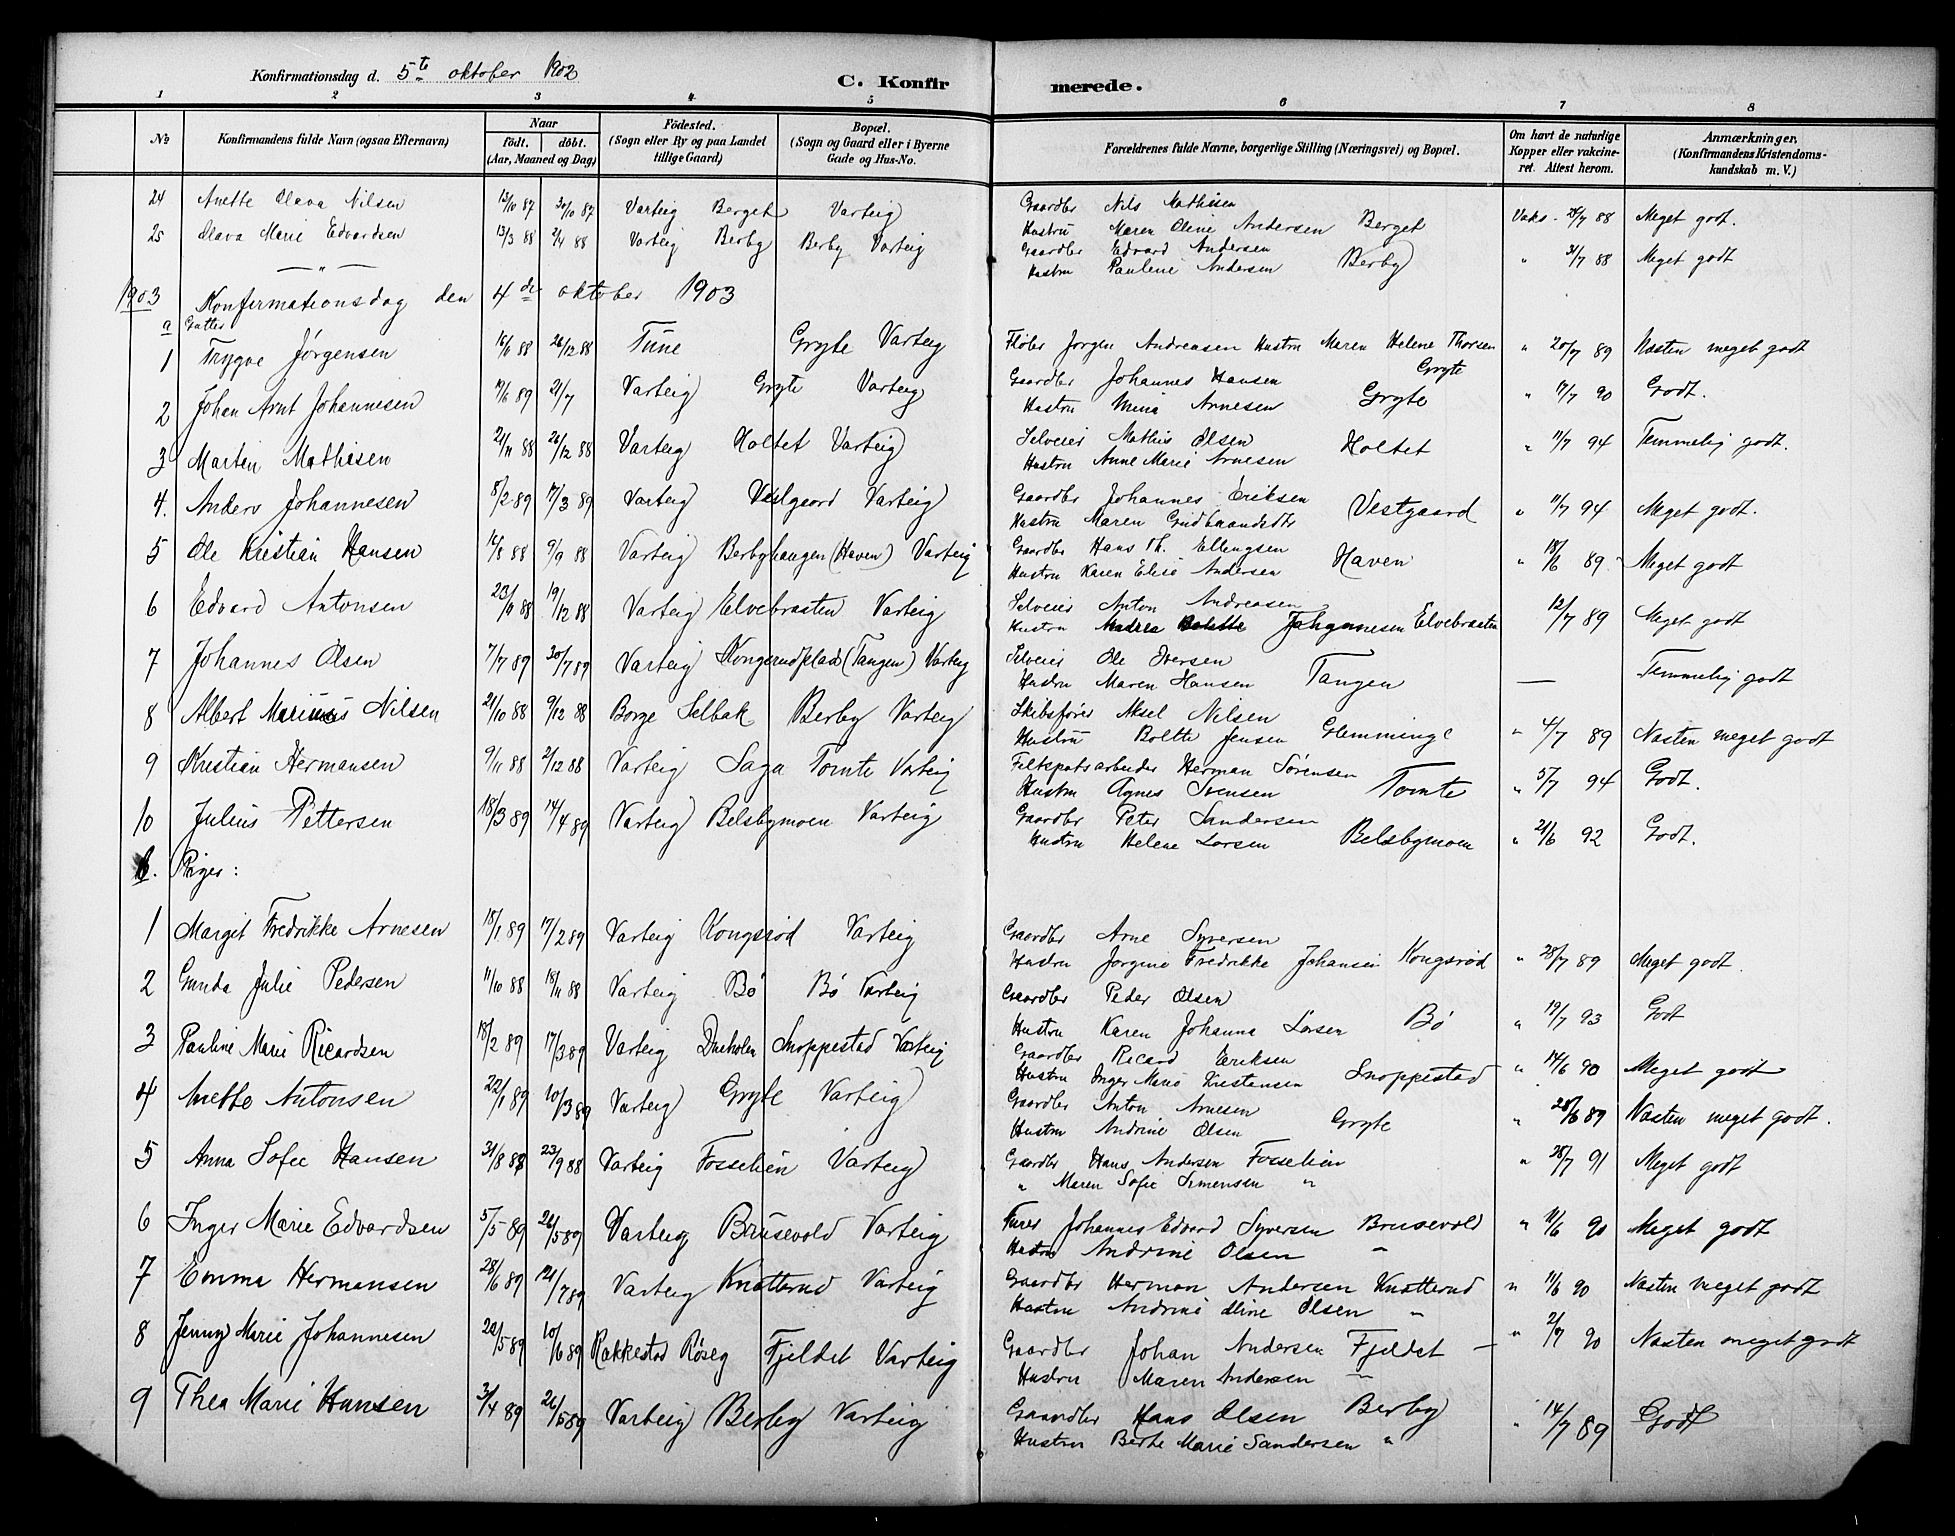 Konfirmationsdag d. 5te oktober 1902
C. Konfirmerede.
1 2 3 4 5 6 7 8
No
Konfirmandens fulde Navn (ogsaa Efternavn)
Naar
födt. döbt.
(Aar, Maaned og Dag)
Födested.
(Sogn eller By og paa Landet
tillige Gaard)
Bopæl.
(Sogn og Gaard eller i Byerne
Gade og Hus-No.
Forældrenes fulde Navne, borgerlige Stilling (Næringsvei) og Bopæl.
Om havt de naturlige
Kopper eller vakcine-
ret. Attest herom.
Anmærkninger,
(Konfirmandens Kristendoms-
kundskab m. V.)
24 Anette Olava Nilsen 13/10 87 30/10 87 Varteig Berget Varteig Gaardbr Nils Mathisen
Hustru Maren Oline Andersen Berget Vaks. 28/7 88 Meget godt.
25 Olava Marie Edvardsen 13/3 88 2/4 88 Varteig Berby Berby Varteig Gaardbr Edvard Andersen
Hustru Pauline Andersen Berby " 31/7 88 Meget godt
— " —
1903 Konfirmationsdag den 4de oktober 1903
a Gutter
1 Trygve Jörgensen 16/6 88 26/12 88 Tune Gryte Varteig Fløter Jørgen Andreasen Hustru Maren Helene Thorsen
Gryte " 20/7 89 Næsten meget godt
2 Johan Arnt Johannesen 19/6 89 21/7 Varteig Gryte Varteig Gaardbr Johannes Hansen
Hustru Mina Arnesen Gryte " 17/7 90 Godt.
3 Martin Mathisen 21/11 88 26/12 88 Varteig Holtet Varteig Selveier Mathis Olsen
Hustru Anne Marie Arnesen Holtet " 11/7 94 Temmelig godt.
4. Anders Johannesen 8/2 89 17/3 89 Varteig Vestgaard Varteig Gaardbr Johannes Eriksen
Hustru Maren Gudbrandsdtr Vestgaard " 11/7 94 Meget godt.
5 Ole Kristian Hansen 12/8 88 9/9 88 Varteig Berbyhaugen (Haven) Varteig Gaardbr Hans Th. Ellingsen
Hustru Karen Elise Andersen Haven " 18/6 89 Meget godt
6 Edvard Antonsen 23/11 88 19/12 88 Varteig Elvebraaten Varteig Selveier Anton Andreasen
Hustru Johannesen Elvebraaten 12/7 89 Meget godt
7 Johannes Olsen 7/7 89 20/7 89 Varteig Kongerudplads (Tangen) Varteig Selveier Ole Iversen
Hustru Maren Hansen Tangen — Temmelig godt
8 Albert Marinius Nilsen 21/10 88 9/12 88 Borge Selbak Berby Varteig Skibsfører Aksel Nilsen
Hustru Bolette Jensen Glemminge " 4/7 89 Næsten meget godt
9 Kristian Hermansen 9/11 88 2/12 88 Varteig Saga Tomte Varteig Feltspatsarbeider Herman Sørensen
Hustru Agnes Svensen Tomte " 5/7 94 Godt.
10 Julius Pettersen 18/3 89 14/4 89 Varteig Belsbymoen Varteig Gaardbr Peter Sandersen
Hustru Helene Larsen Belsbymoen " 21/6 92 Godt.
b. Piger:
1 Margit Fredrikke Arnesen 18/1 89 17/2 89 Varteig Kongsrød Varteig Gaardbr Arne Syversen
Hustru Jørgine Fredrikke Johansen Kongsrød " 28/7 89 Meget godt.
2 Gunda Julie Pedersen 11/10 88 18/11 88 Varteig Bø Bø Varteig Gaardbr Peder Olsen
Hustru Karen Johanna Larsen Bø " 19/7 93 Godt
3 Pauline Marie Ricardsen 18/2 89 17/3 89 Varteig Dueholen Snoppestad Varteig Gaardbr Ricard Eriksen
Hustru Inger Marie Kristensen Snoppestad " 14/6 90 Meget godt
4 Anette Antonsen 22/1 89 10/3 89 Varteig Gryte Varteig Gaardbr Anton Arnesen
Hustru Andrine Olsen Gryte " 28/6 89 Næsten meget godt.
5 Anna Sofie Hansen 31/8 88 23/9 88 Varteig Fosselien Varteig Gaardbr Hans Andersen Fosselien
" Maren Sofie Simensen " " 28/7 91 Meget godt
6 Inger Marie Edvardsen 5/5 89 26/5 89 Varteig Brusevold Varteig Johannes Edvard Syversen Brusevold
Hustru Andrine Olsen " " 11/6 90 Meget godt
7 Emma Hermansen 28/6 89 21/7 89 Varteig Knatterud Varteig Gaardbr Herman Andersen Knatterud
Hustru Andrine Oline Olsen " " 11/6 90 Næsten meget godt
8 Jenny Marie Johannesen 22/5 89 10/6 89 Rakkestad Røseg Fjeldet Varteig Gaardbr Johan Andersen Fjeldet —
Hustru Maren Andersen " " 2/7 90 Næsten meget godt
9 Thea Marie Hansen 3/4 89 26/5 89 Varteig Berby Varteig Gaardbr Hans Olsen Berby
Hustru Berte Marie Sandersen " " 14/7 89 Godt